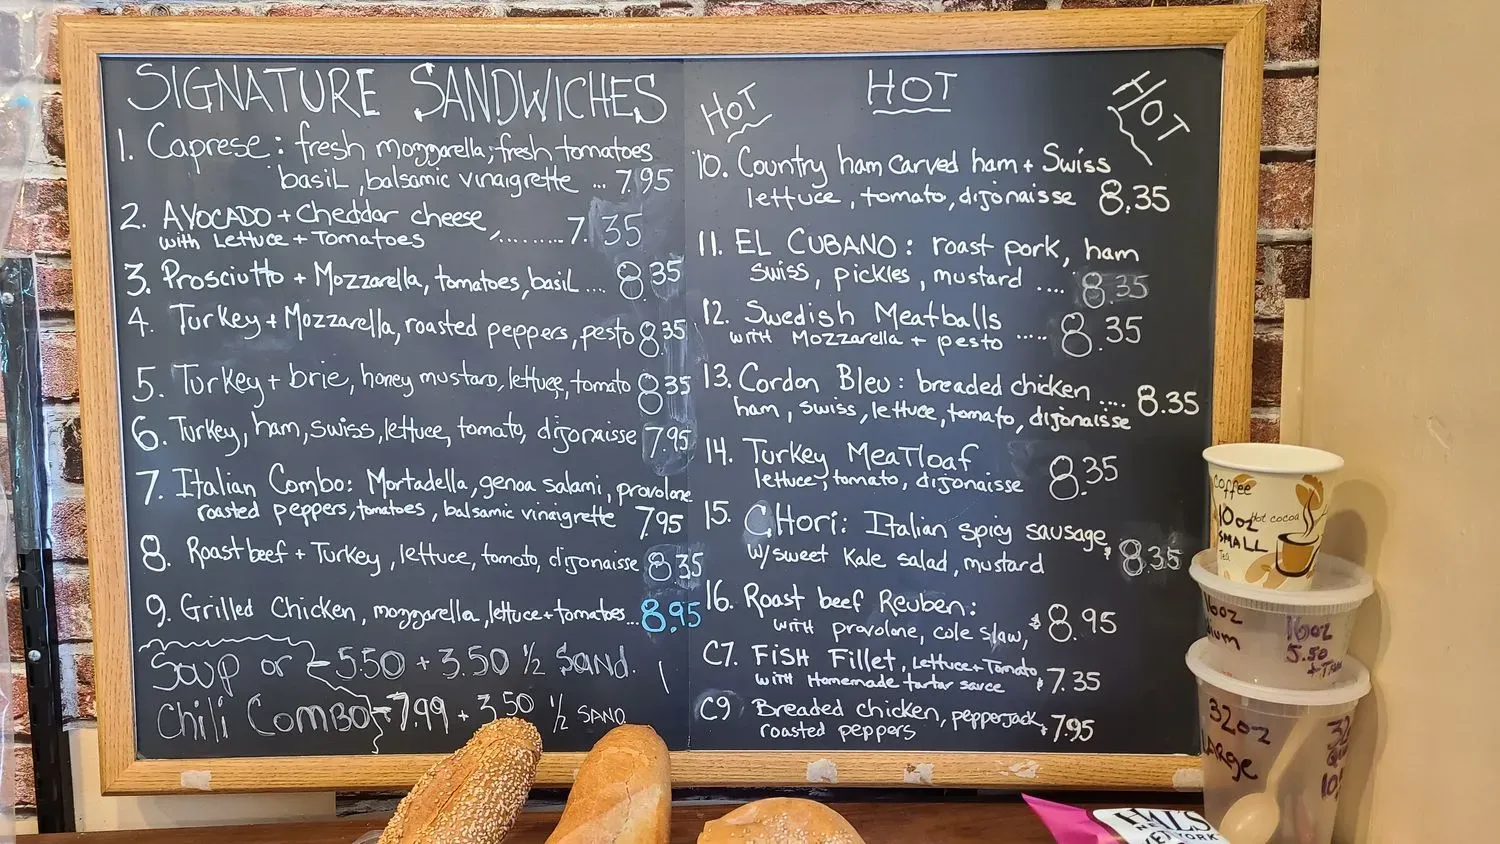 SIGNATURE SANDWICHES
1. Caprese: fresh mozzarella; fresh tomatoes
basil, balsamic vinaigrette ... 7.95
2. AVOCADO + Cheddar cheese
with Lettuce + Tomatoes ........ 7.35
3. Prosciutto + Mozzarella, tomatoes, basil .... 8.35
4. Turkey + Mozzarella, roasted peppers, pesto 8.35
5. Turkey + brie, honey mustard, lettuce, tomato 8.35
6. Turkey, ham, swiss, lettuce, tomato, dijonaisse 7.95
7. Italian Combo: Mortadella, genoa salami, provolone
roasted peppers, tomatoes, balsamic vinaigrette 7.95
8. Roast beef + Turkey, lettuce, tomato, dijonaisse 8.35
9. Grilled Chicken, mozzarella, lettuce + tomatoes... 8.95
Soup or - 5.50 + 3.50 1/2 SAND.
Chili COMBO - 7.99 + 3.50 1/2 SAND
HOT HOT HOT
10. Country ham carved ham + Swiss
lettuce, tomato, dijonaisse 8.35
11. EL CUBANO: roast pork, ham
swiss, pickles, mustard .... 8.35
12. Swedish Meatballs
with Mozzarella + pesto ..... 8.35
13. Cordon Bleu: breaded chicken .... 8.35
ham, swiss, lettuce, tomato, dijonaisse
14. Turkey Meatloaf
lettuce, tomato, dijonaisse 8.35
15. CHori: Italian spicy sausage,
w/sweet Kale salad, mustard $8.35
16. Roast beef Reuben:
with provolone, cole slaw, $8.95
C7. FiSH Fillet, Lettuce + Tomato
with Homemade tartar sauce $7.35
C9 Breaded chicken, pepperjack
roasted peppers $7.95
coffee
Hot cocoa
Tea
10oz
SMALL
16oz
16oz
5.50
+ Tax
32oz
LARGE
32
HAL'S
NEW YORK